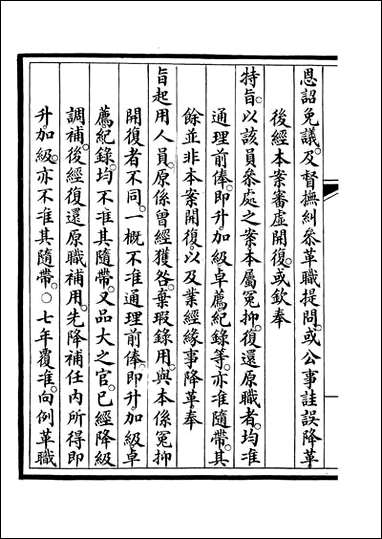 恩詔免議。及督撫糾參革職提問。或公事詿誤降革
後經本案審虛開復。或欽奉
特旨。以該員參處之案。本屬冤抑。復還原職者。均准
通理前俸。即升加級卓薦紀錄等。亦准隨帶。其
餘並非本案開復。以及業經緣事降革。奉
旨起用人員。原係曾經獲咎。棄瑕錄用。與本係冤抑
開復者不同。一概不准通理前俸。即升加級卓
薦紀錄。均不准其隨帶。又品大之官。已經降級
調補。後經復還原職補用。先降補任內所得即
升加級。亦不准其隨帶。○七年覆准。向例革職